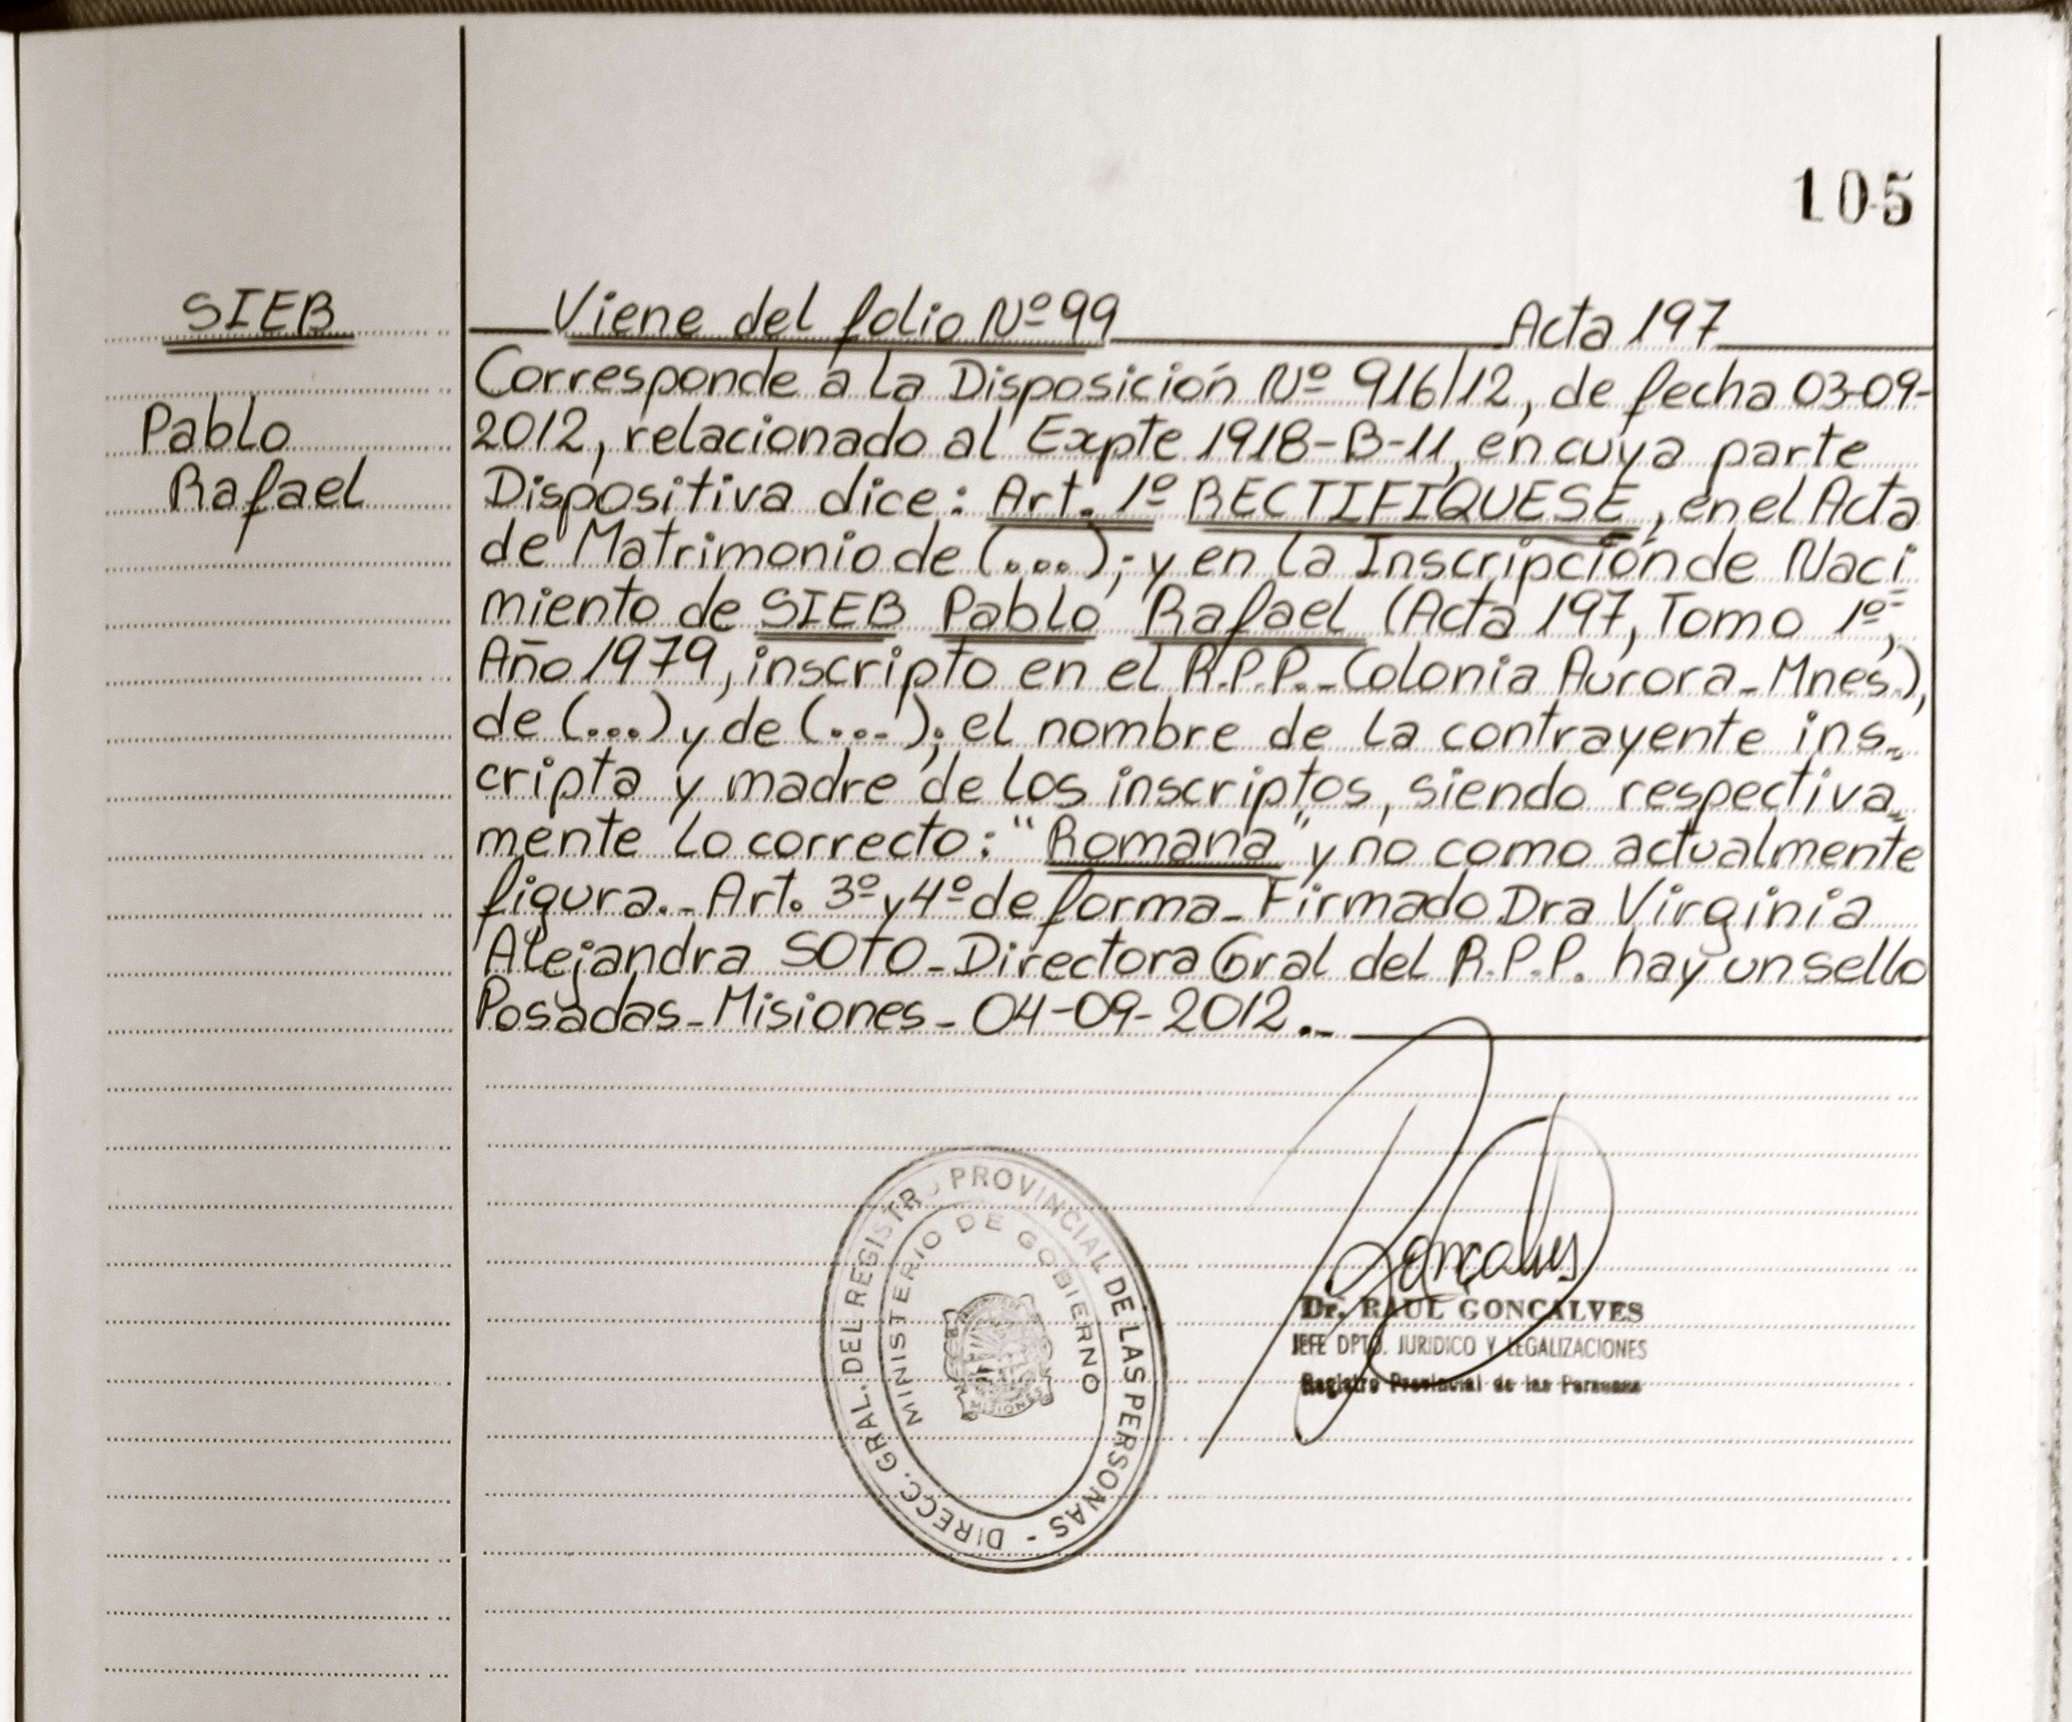 105
SIEB
Pablo
Rafael
Viene del folio Nº 99 Acta 197
Corresponde a la Disposición Nº 916/12, de fecha 03-09-
2012, relacionado al Expte 1918-B-11, en cuya parte
Dispositiva dice: Art. 1º RECTIFIQUESE, en el Acta
de Matrimonio de (...); y en la Inscripción de Naci
miento de SIEB Pablo Rafael (Acta 197, Tomo 1º,
Año 1979, inscripto en el R.P.P.-Colonia Aurora-Mnes),
de (...) y de (...); el nombre de la contrayente ins-
cripta y madre de los inscriptos, siendo respectiva-
mente lo correcto: "Romana" y no como actualmente
figura.- Art. 3º y 4º de forma- Firmado Dra Virginia
Alejandra SOTO-Directora Gral del R.P.P. hay un sello
Posadas-Misiones- 04-09-2012.-
DIRECC. GRAL. DEL REGISTRO PROVINCIAL DE LAS PERSONAS -
MINISTERIO DE GOBIERNO
MISIONES
Goncalves
Dr. RAUL GONCALVES
JEFE DPTO. JURIDICO Y LEGALIZACIONES
Registro Provincial de las Personas